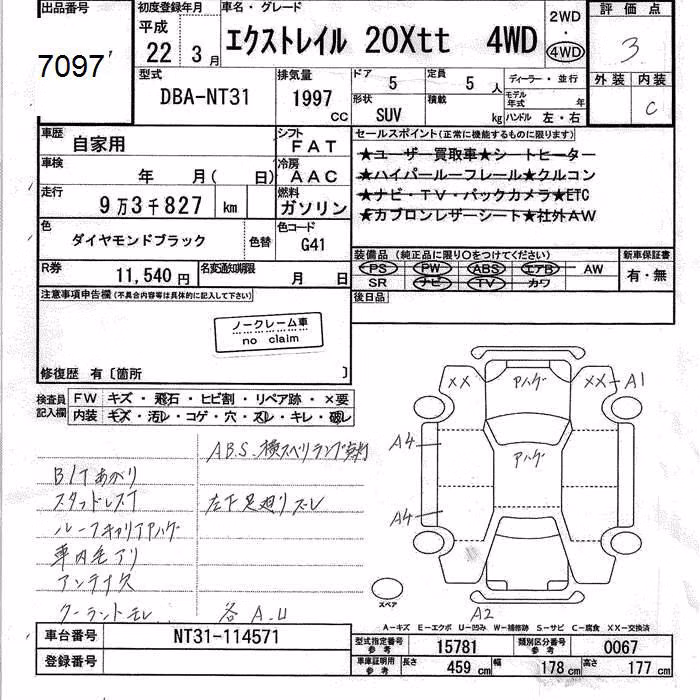 出品番号
7097
初度登録年月
平成
22年 3月
車名・グレード
エクストレイル 20Xtt 4WD
2WD
・
4WD
評価点
3
外装 内装
C
型式
DBA-NT31
排気量
1997 CC
ドア
5
定員
5 人
形状
SUV
積載
kg
ディーラー・並行
モデル年式 年
ハンドル 左・右
車歴
自家用
シフト
FAT
車検
年 月( 日)
冷房
AAC
走行
9万3千827 km
燃料
ガソリン
色
ダイヤモンドブラック
色替
色コード
G41
R券
11,540円
名変通知期限
月 日
セールスポイント(正常に機能するものに限ります)
★ユーザー買取車★シートヒーター
★ハイパールーフレール★クルコン
★ナビ・TV・バックカメラ★ETC
★カブロンレザーシート★社外AW
装備品 (純正品に限り○をつけてください)
PS PW ABS エアB AW
SR ナビ TV カワ
新車保証書
有・無
後日品
注意事項申告欄(不具合内容等は具体的に記入して下さい)
ノークレーム車
no claim
修復歴 有〔箇所 〕
検査員記入欄
FW キズ・飛石・ヒビ割・リペア跡・×要
内装 キズ・汚レ・コゲ・穴・スレ・キレ・破レ
A.B.S. 横スベリランプ点灯
B/Tあがり
スタッドレスT
左下足廻りズレ
ルーフキャリアアハゲ
車内毛アリ
アンテナ欠
クーラントモレ
各A.U
XX
アハゲ
XX
A1
A4
アハゲ
A4
スペア
A2
A-キズ E-エクボ U-凹み W-補修跡 S-サビ C-腐食 XX-交換済
車台番号
NT31-114571
登録番号
型式指定番号 参考
15781
類別区分番号 参考
0067
車庫証明用 参考
長さ 459 cm
幅 178 cm
高さ 177 cm